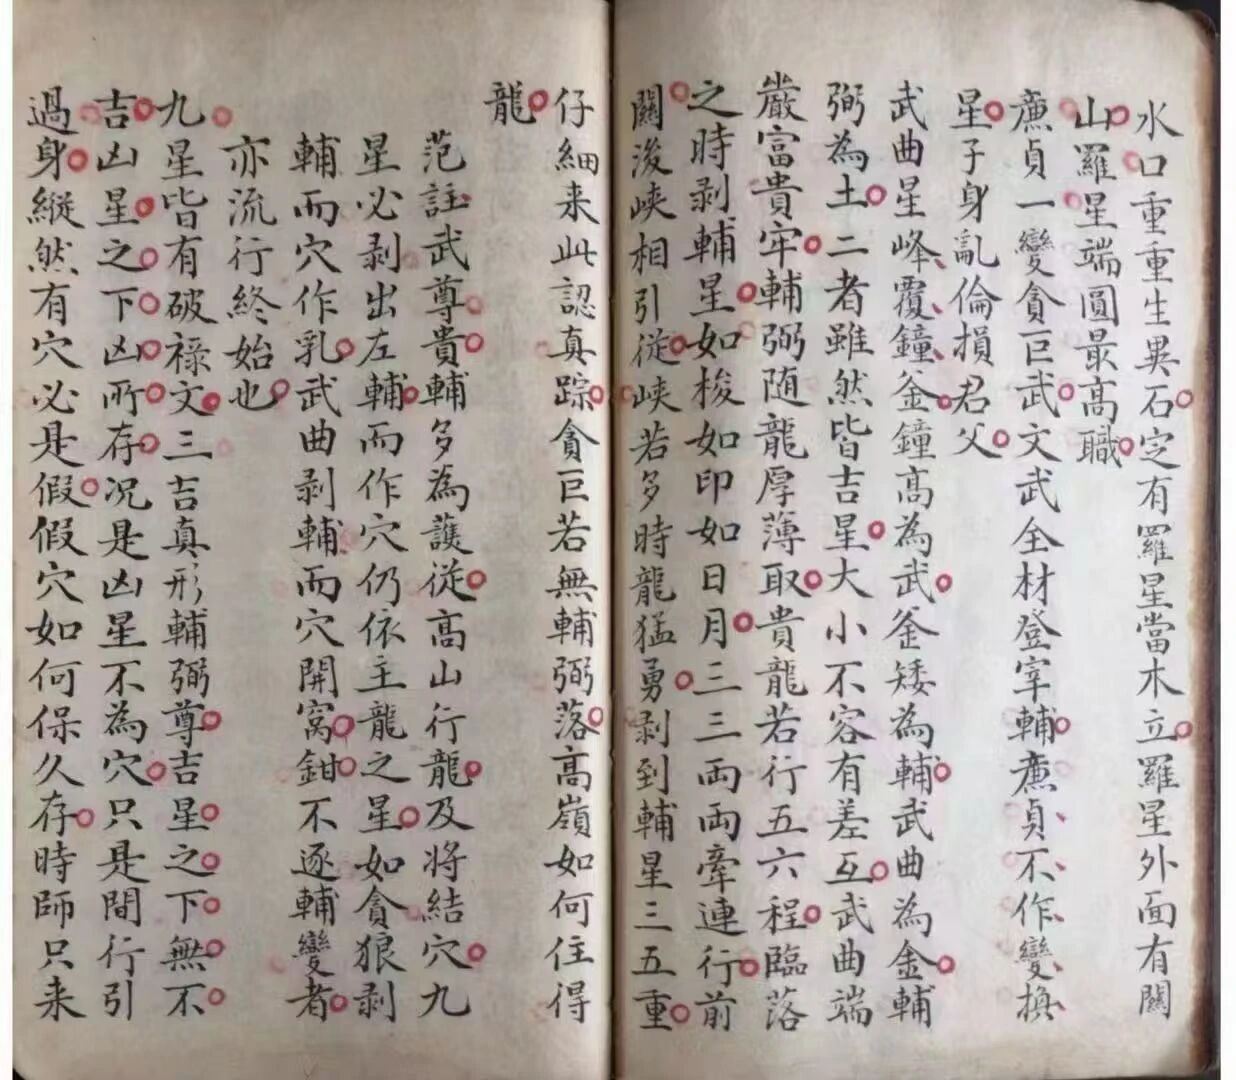 水口重重生異石定有羅星當木立羅星外面有關
山羅星端圓最高職
廉貞一變貪巨武文武全材登宰輔廉貞不作變換
星子身亂倫損君父
武曲星峰覆鐘釜鐘高為武釜矮為輔武曲為金輔
弼為土二者雖然皆吉星大小不容有差互武曲端
嚴富貴牢輔弼随龍厚薄取貴龍若行五六程臨落
之時剥輔星如梭如印如日月三三両両牽連行前
關浚峡相引從峡若多時龍猛勇剥到輔星三五重
仔細来此認真踪貪巨若無輔弼落高嶺如何住得
龍
范註武尊貴輔多為護從高山行龍及將結穴九
星必剥出左輔而作穴仍依主龍之星如貪狼剥
輔而穴作乳武曲剥輔而穴開窩鉗不逐輔變者
亦流行終始也
九星皆有破祿文三吉真形輔弼尊吉星之下無不
吉凶星之下凶所存况是凶星不為穴只是間行引
過身縱然有穴必是假假穴如何保久存時師只来